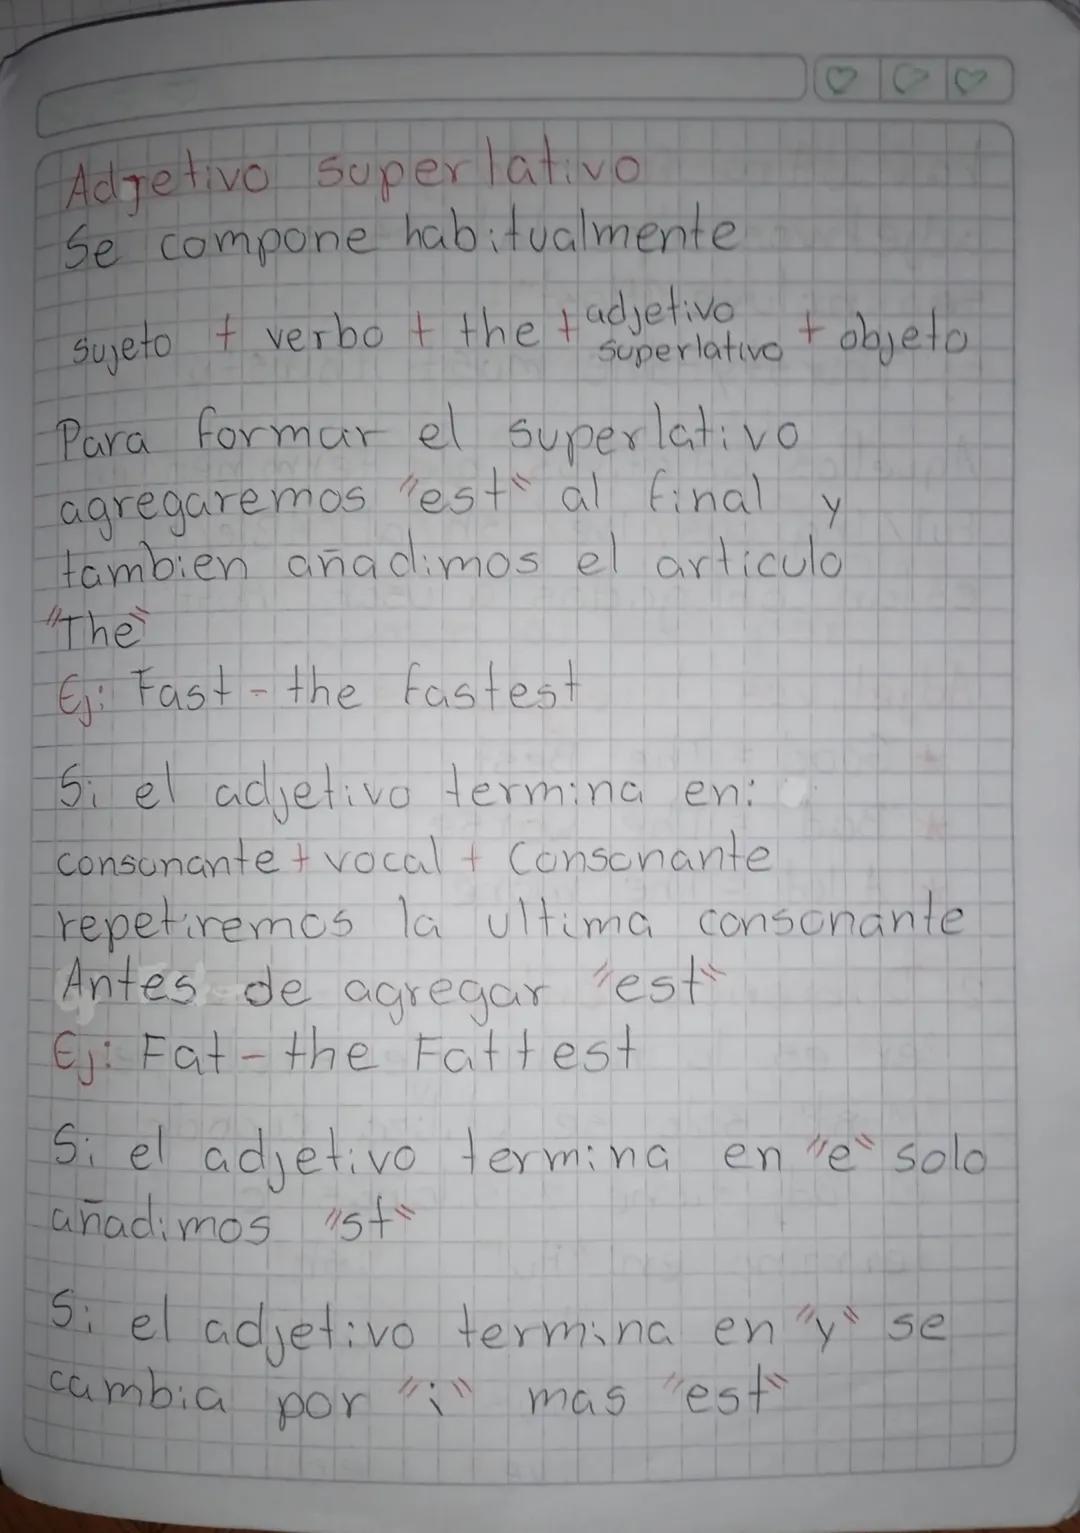 Adjetivo superlativo
Se compone habitualmente
sujeto + verbo + the + adjetivo superlativo + objeto
Para formar el superlativo
agregaremos "est" al final y
tambien añadimos el articulo
"The"
Ej: Fast - the fastest
Si el adjetivo termina en:
consonante + vocal + Consonante
repetiremos la ultima consonante
Antes de agregar "est"
Ej: Fat - the Fattest
Si el adjetivo termina en "e" solo
añadimos "st"
Si el adjetivo termina en "y" se
cambia por "i" mas "est"